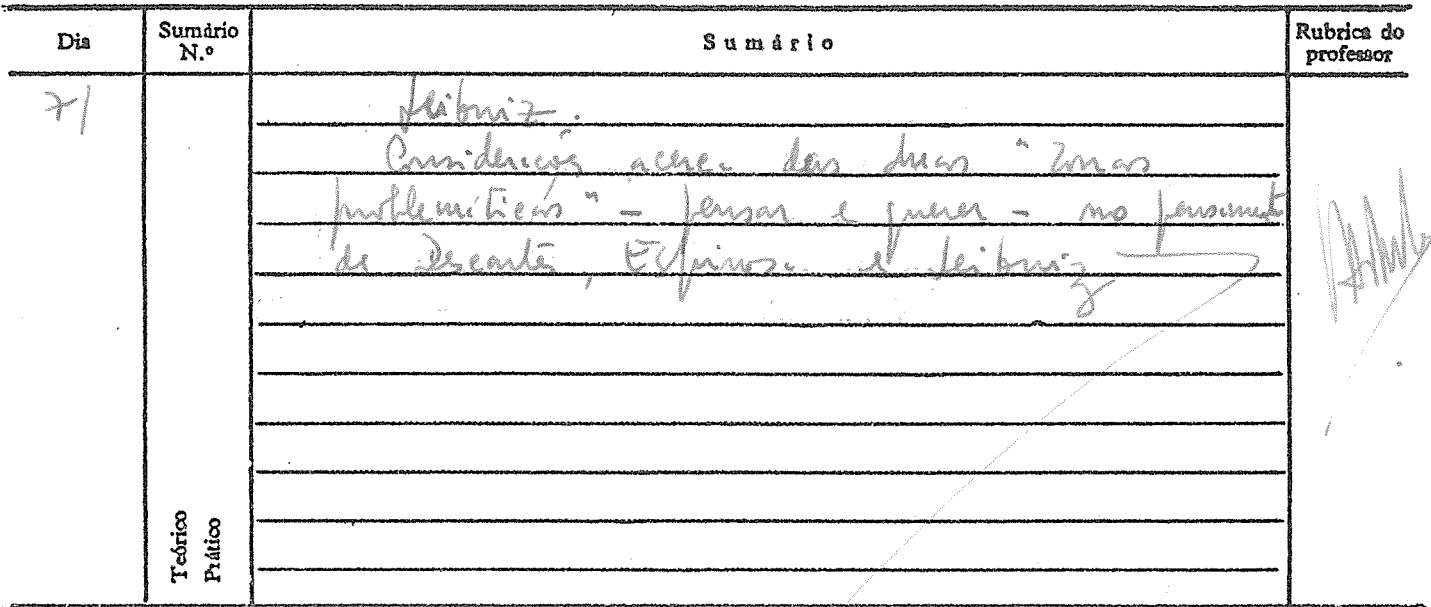 Dia Sumário N.º Sumário Rubrica do professor
7/ Leibniz.
Considerações acerca das duas "zonas
problemáticas" – pensar e querer – no pensamento
de Descartes, Espinosa e Leibniz
Teórico
Prático